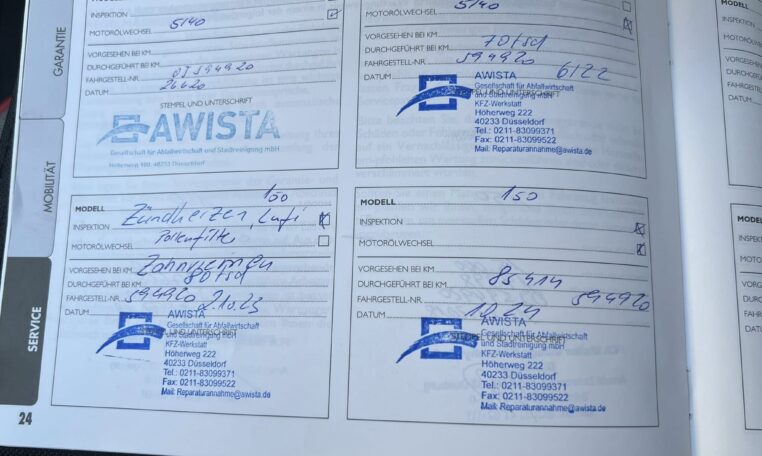 GARANTIE
MOBILITÄT
SERVICE
INSPEKTION
5/40
MOTORÖLWECHSEL
VORGESEHEN BEI KM
DURCHGEFÜHRT BEI KM
FAHRGESTELL-NR.
DATUM
STEMPEL UND UNTERSCHRIFT
AWISTA
Gesellschaft für Abfallwirtschaft und Stadtreinigung mbH
Höherweg 100, 40233 Düsseldorf
INSPEKTION
5/40
MOTORÖLWECHSEL
VORGESEHEN BEI KM
70tsd
DURCHGEFÜHRT BEI KM
594920
FAHRGESTELL-NR.
DATUM
6/22
AWISTA
Gesellschaft für Abfallwirtschaft
und Stadtreinigung mbH
STEMPEL UND UNTERSCHRIFT
KFZ-Werkstatt
Höherweg 222
40233 Düsseldorf
Tel.: 0211-83099371
Fax: 0211-83099522
Mail: Reparaturannahme@awista.de
150
MODELL
Zündkerzen, Lufi
INSPEKTION
Pollenfilter
MOTORÖLWECHSEL
Zahnriemen
VORGESEHEN BEI KM
80tsd
DURCHGEFÜHRT BEI KM
594920
FAHRGESTELL-NR.
2.10.23
DATUM
AWISTA
Gesellschaft für Abfallwirtschaft
und Stadtreinigung mbH
STEMPEL UND UNTERSCHRIFT
KFZ-Werkstatt
Höherweg 222
40233 Düsseldorf
Tel.: 0211-83099371
Fax: 0211-83099522
Mail: Reparaturannahme@awista.de
150
MODELL
INSPEKTION
MOTORÖLWECHSEL
VORGESEHEN BEI KM
85414
DURCHGEFÜHRT BEI KM
594920
FAHRGESTELL-NR.
10.24
DATUM
AWISTA
Gesellschaft für Abfallwirtschaft
und Stadtreinigung mbH
STEMPEL UND UNTERSCHRIFT
KFZ-Werkstatt
Höherweg 222
40233 Düsseldorf
Tel.: 0211-83099371
Fax: 0211-83099522
Mail: Reparaturannahme@awista.de
MODELL
INSPEKTION
24